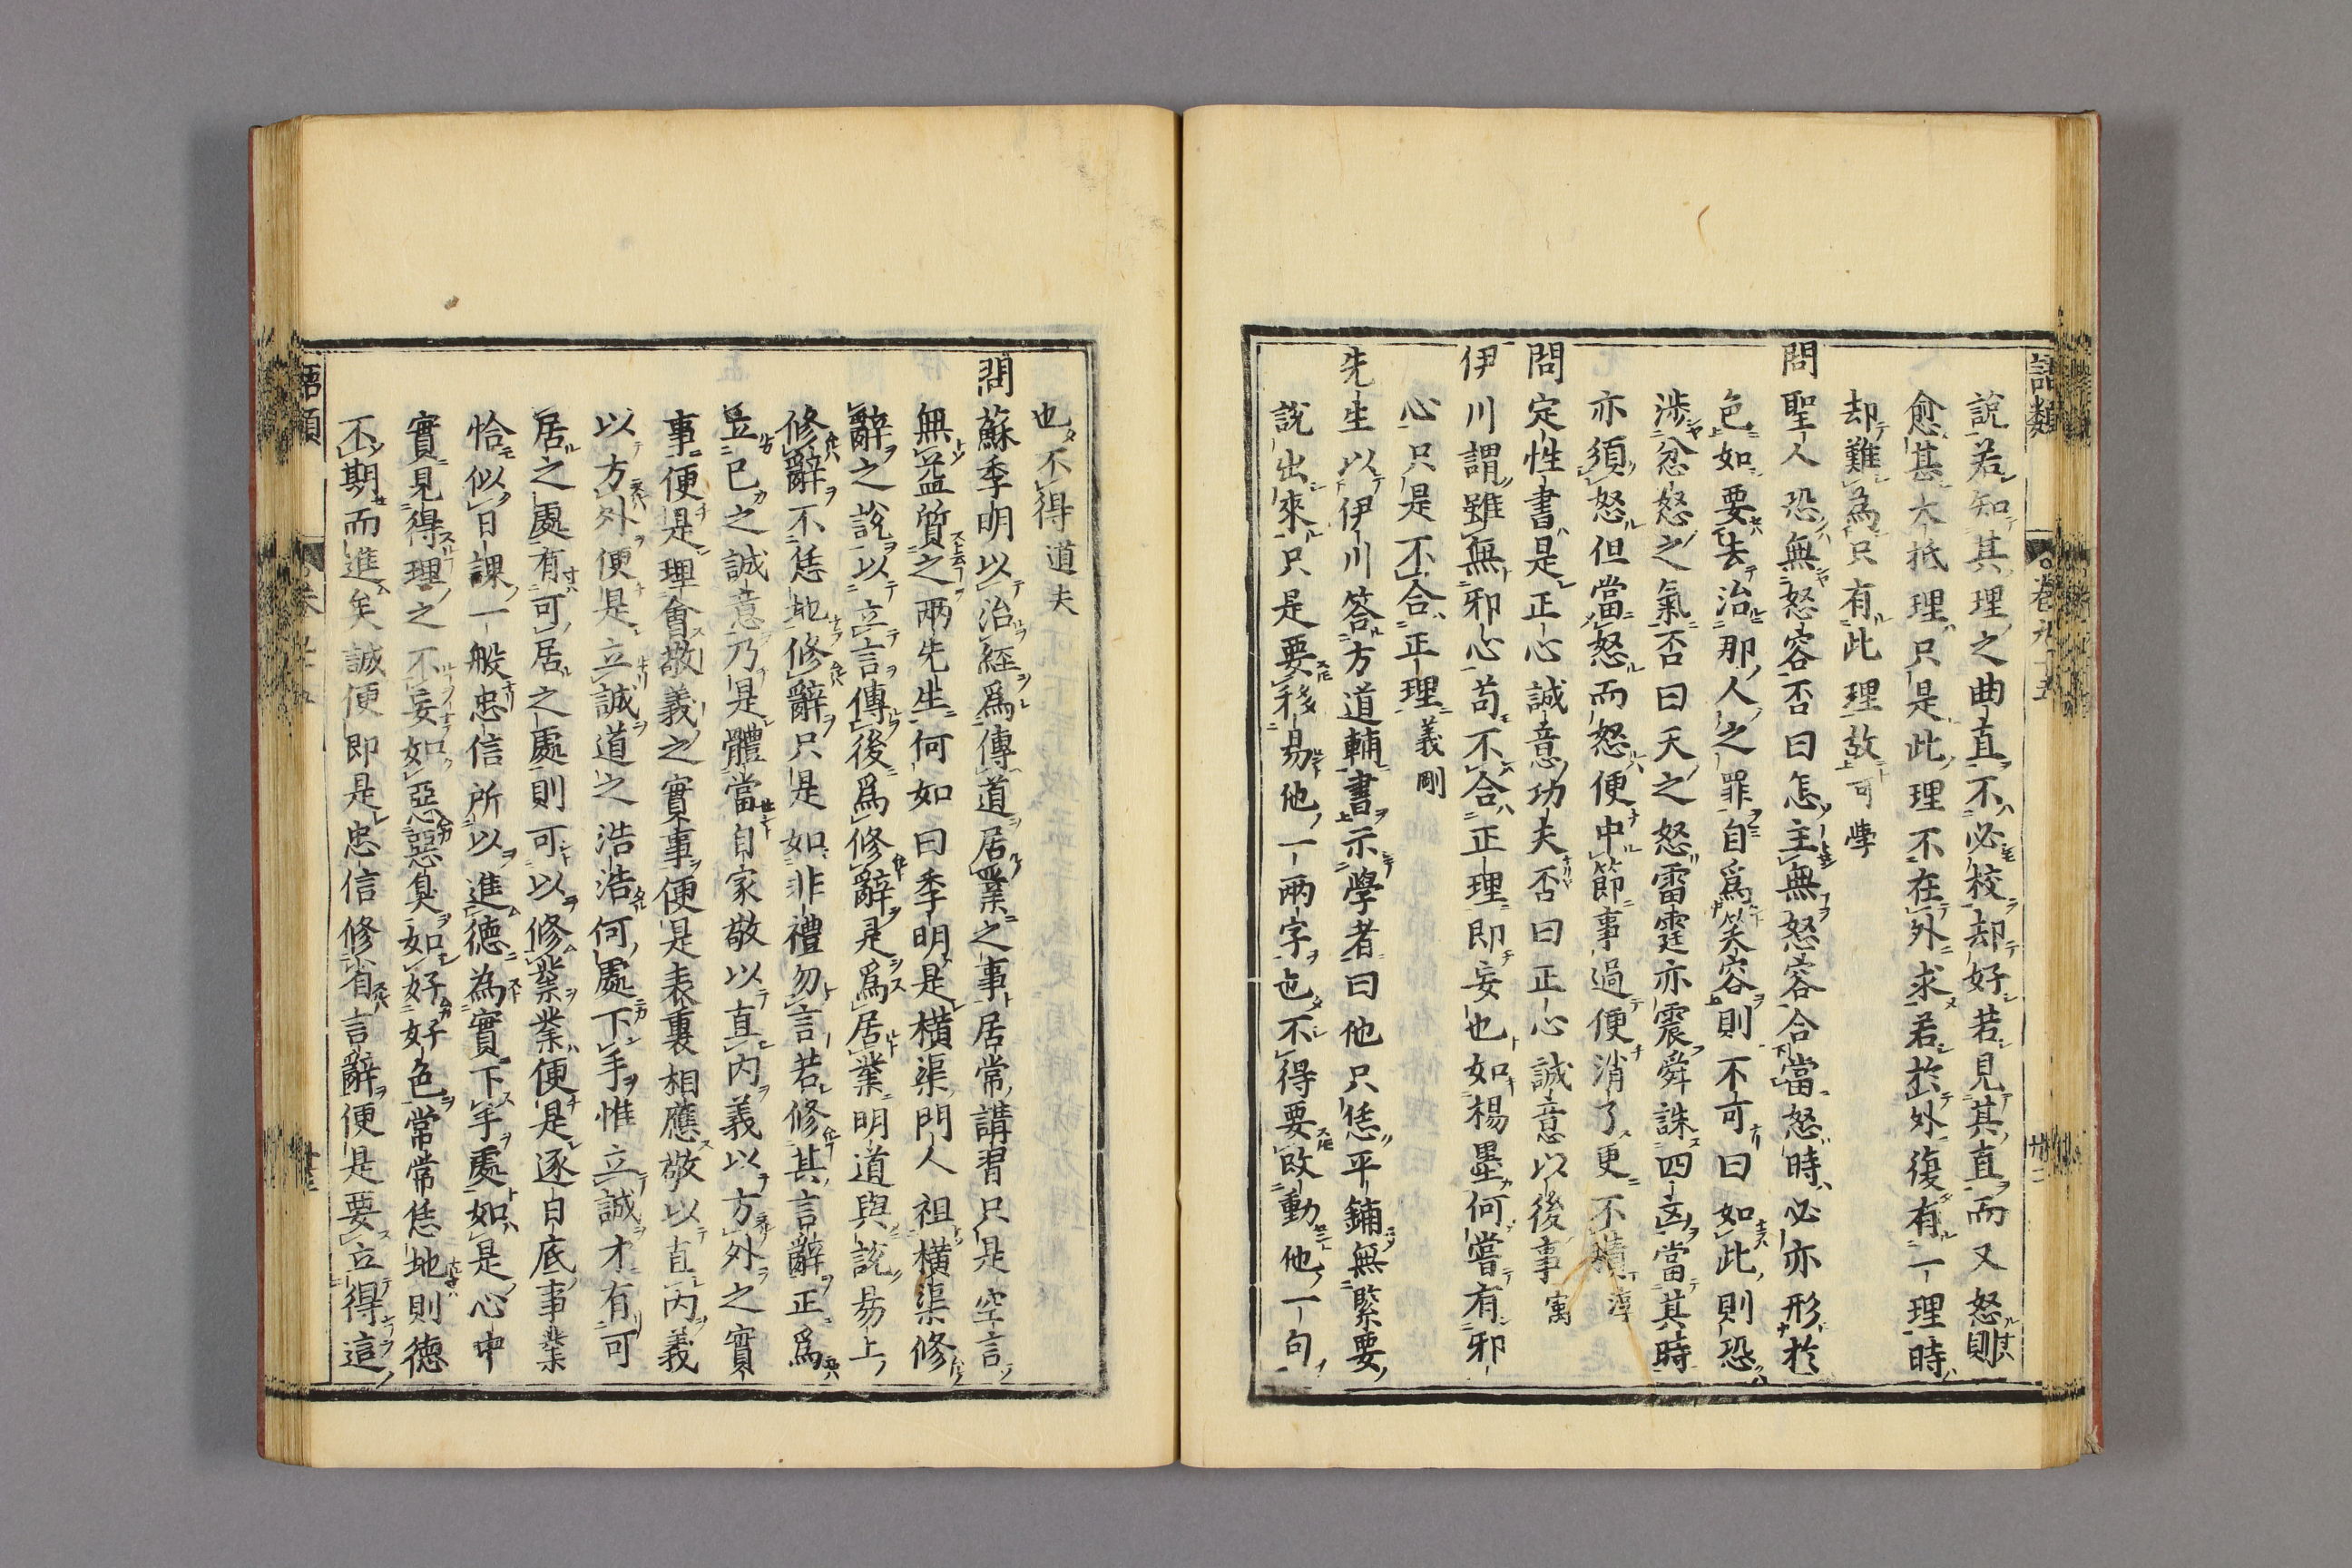 語類
卷九十五
卅二
說若知其理之曲直不必校却好若見其直而又怒則
愈甚大抵理只是此理不在外求若於外復有一理時
却難為只有此理故可學
問聖人恐無怒容否曰怎主無怒容合當怒時必亦形於
色如要去治那人之罪自爲笑容則不可曰如此則恐
涉忿怒之氣否曰天之怒雷霆亦震舜誅四凶當其時
亦須怒但當怒而怒便中節事過便消了更不積淳
問定性書是正心誠意功夫否曰正心誠意以後事㝢
伊川謂雖無邪心苟不合正理即妄也如楊墨何嘗有邪
心只是不合正理義剛
先生以伊川答方道輔書示學者曰他只恁平鋪無緊要
說出來只是要移易他一兩字也不得要改動他一句
也不得道夫
問蘇季明以治經爲傳道居業之事居常講習只是空言
無益質之兩先生何如曰季明是橫渠門人祖橫渠修
辭之說以立言傳後爲修辭是爲居業明道與說易上
修辭不恁地修辭只是如非禮勿言若修其言辭正爲
立己之誠意乃是體當自家敬以直內義以方外之實
事便是理會敬義之實事便是表裏相應敬以直內義
以方外便是立誠道之浩浩何處下手惟立誠才有可
居之處有可居之處則可以修業業便是逐日底事業
恰似日課一般忠信所以進德為實下手處如是心中
實見得理之不妄如惡惡臭如好好色常常恁地則德
不期而進矣誠便即是忠信修省言辭便是要立得這
語類